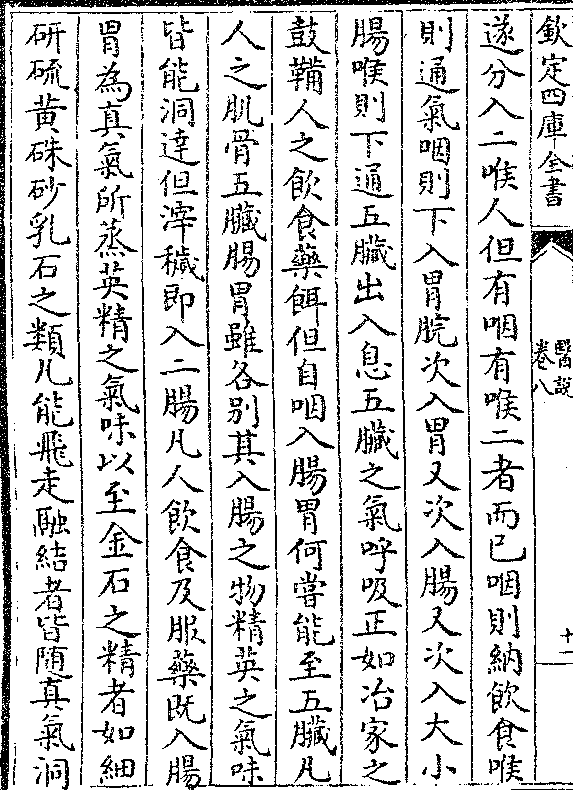 欽定四庫全書
醫說
卷八
十二
遂分入二喉人但有咽有喉二者而已咽則納飲食喉
則通氣咽則下入胃脘次入胃又次入腸又次入大小
腸喉則下通五臟出入息五臟之氣呼吸正如冶家之
鼓鞴人之飲食藥餌但自咽入腸胃何嘗能至五臟凡
人之肌骨五臟腸胃雖各别其入腸之物精英之氣味
皆能洞達但滓穢即入二腸凡人飲食及服藥既入腸
胃為真氣所蒸英精之氣味以至金石之精者如細
研硫黃硃砂乳石之類凡能飛走融結者皆隨真氣洞